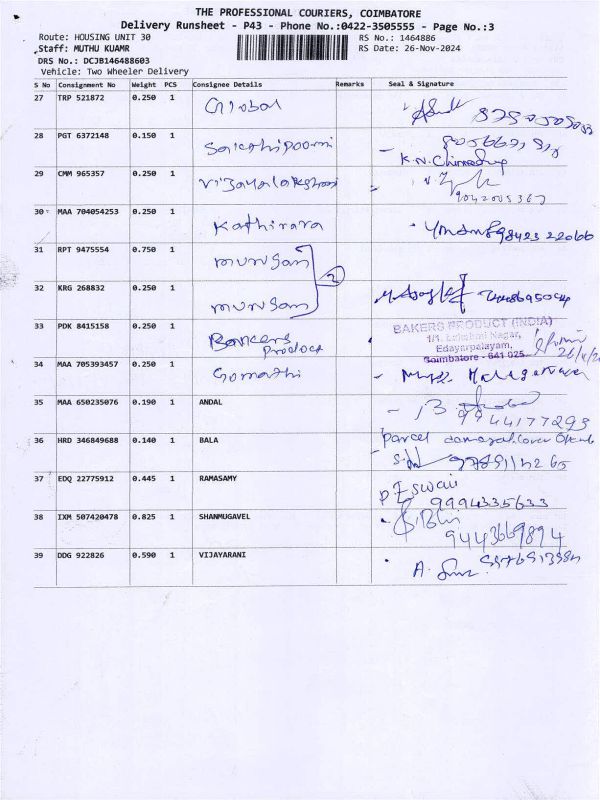 THE PROFESSIONAL COURIERS, COIMBATORE
Delivery Runsheet - P43 - Phone No.:0422-3505555 - Page No.:3
Route: HOUSING UNIT 30 RS No.: 1464886
Staff: MUTHU KUAMR RS Date: 26-Nov-2024
DRS No.: DCJB146488603
Vehicle: Two Wheeler Delivery
S No Consignment No Weight PCS Consignee Details Remarks Seal & Signature
27 TRP 521872 0.250 1 Global
28 PGT 6372148 0.150 1
K.N.
29 CMM 965357 0.250 1 Vijayalakshmi
9042005367
30 MAA 704054253 0.250 1 Kathirava 98423 22066
31 RPT 9475554 0.750 1 murugan
2
32 KRG 268832 0.250 1 murugan
33 PDK 8415158 0.250 1 Bankers
Product
BAKERS PRODUCT (INDIA)
1/1, Lakshmi Nagar,
Edayarpalayam,
Coimbatore - 641 025
34 MAA 705393457 0.250 1 Gomathi
35 MAA 650235076 0.190 1 ANDAL
9944177293
36 HRD 346849688 0.140 1 BALA parcel
37 EDQ 22775912 0.445 1 RAMASAMY P Eswari
9994335633
38 IXM 507420478 0.825 1 SHANMUGAVEL
9443669894
39 DDG 922826 0.590 1 VIJAYARANI
A.